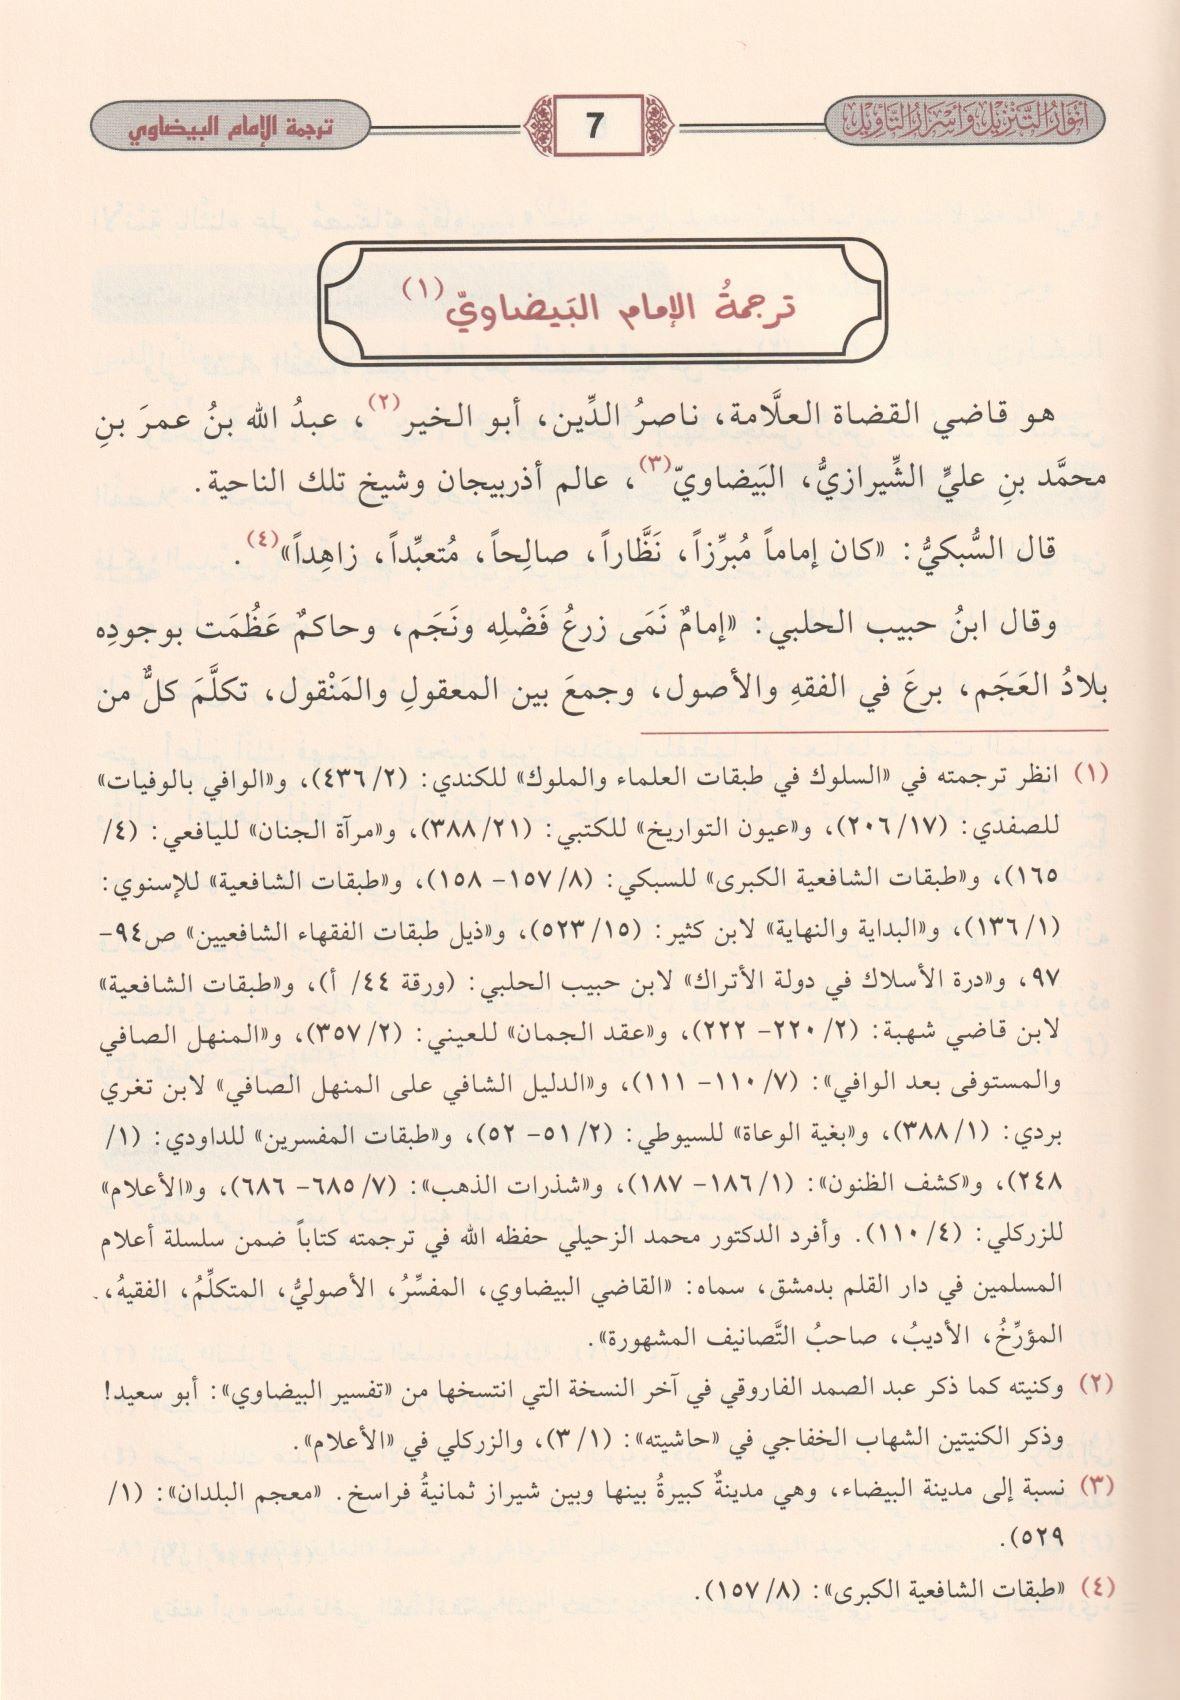 أنوار التنزيل وأسرار التأويل
7
ترجمة الإمام البيضاوي
ترجمةُ الإمام البَيضاويّ (١)
هو قاضي القضاة العلَّامة، ناصرُ الدِّين، أبو الخير(٢)، عبدُ الله بنُ عمرَ بنِ
محمَّد بنِ عليٍّ الشِّيرازيُّ، البَيضاويّ(٣)، عالم أذربيجان وشيخ تلك الناحية.
قال السُّبكيُّ: «كان إماماً مُبرِّزاً، نَظَّاراً، صالِحاً، مُتعبِّداً، زاهِداً»(٤).
وقال ابنُ حبيب الحلبي: «إمامٌ نَمَى زرعُ فَضْلِه ونَجَم، وحاكمٌ عَظُمَت بوجودِه
بلادُ العَجَم، برعَ في الفقهِ والأصول، وجمعَ بين المعقولِ والمَنْقول، تكلَّمَ كلٌّ من
(١) انظر ترجمته في «السلوك في طبقات العلماء والملوك» للكندي: (٢/ ٤٣٦)، و«الوافي بالوفيات»
للصفدي: (١٧/ ٢٠٦)، و«عيون التواريخ» للكتبي: (٢١/ ٣٨٨)، و«مرآة الجنان» لليافعي: (٤/
١٦٥)، و«طبقات الشافعية الكبرى» للسبكي: (٨/ ١٥٧- ١٥٨)، و«طبقات الشافعية» للإسنوي:
(١/ ١٣٦)، و«البداية والنهاية» لابن كثير: (١٥/ ٥٢٣)، و«ذيل طبقات الفقهاء الشافعيين» ص٩٤-
٩٧، و«درة الأسلاك في دولة الأتراك» لابن حبيب الحلبي: (ورقة ٤٤/ أ)، و«طبقات الشافعية»
لابن قاضي شهبة: (٢/ ٢٢٠- ٢٢٢)، و«عقد الجمان» للعيني: (٢/ ٣٥٧)، و«المنهل الصافي
والمستوفى بعد الوافي»: (٧/ ١١٠- ١١١)، و«الدليل الشافي على المنهل الصافي» لابن تغري
بردي: (١/ ٣٨٨)، و«بغية الوعاة» للسيوطي: (٢/ ٥١- ٥٢)، و«طبقات المفسرين» للداودي: (١/
٢٤٨)، و«كشف الظنون»: (١/ ١٨٦- ١٨٧)، و«شذرات الذهب»: (٧/ ٦٨٥- ٦٨٦)، و«الأعلام»
للزركلي: (٤/ ١١٠). وأفرد الدكتور محمد الزحيلي حفظه الله في ترجمته كتاباً ضمن سلسلة أعلام
المسلمين في دار القلم بدمشق، سماه: «القاضي البيضاوي، المفسِّرُ، الأصوليُّ، المتكلِّمُ، الفقيهُ،
المؤرِّخُ، الأديبُ، صاحبُ التَّصانيف المشهورة».
(٢) وكنيته كما ذكر عبد الصمد الفاروقي في آخر النسخة التي انتسخها من «تفسير البيضاوي»: أبو سعيد!
وذكر الكنيتين الشهاب الخفاجي في «حاشيته»: (١/ ٣)، والزركلي في «الأعلام».
(٣) نسبة إلى مدينة البيضاء، وهي مدينةٌ كبيرةُ بينها وبين شيراز ثمانيةُ فراسخ. «معجم البلدان»: (١/
٥٢٩).
(٤) «طبقات الشافعية الكبرى»: (٨/ ١٥٧).